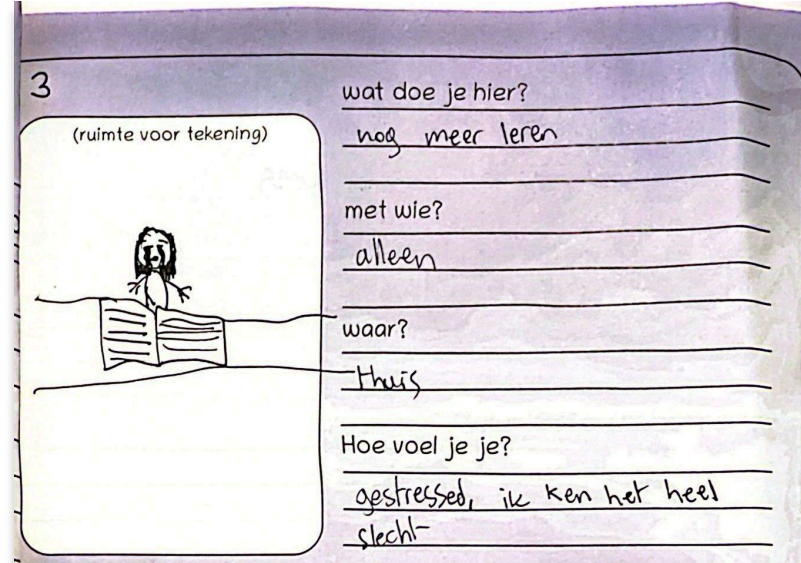 3
(ruimte voor tekening)
wat doe je hier?
nog meer leren
met wie?
alleen
waar?
thuis
Hoe voel je je?
gestressed, ik ken het heel
slecht